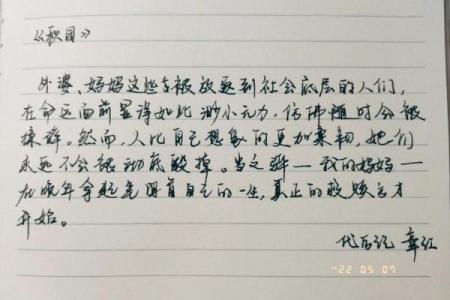 《秋园》
外婆、妈妈这些被放逐到社会底层的人们,
在命运面前显得如此渺小无力,仿佛随时会被
揉碎。然而,人比自己想象的更加柔韧,她们
永远不会被彻底毁掉。当之骅—我的妈妈—
在晚年拿起笔回首自己的一生,真正的救赎方才
开始。
代后记 章红
'22 05 07